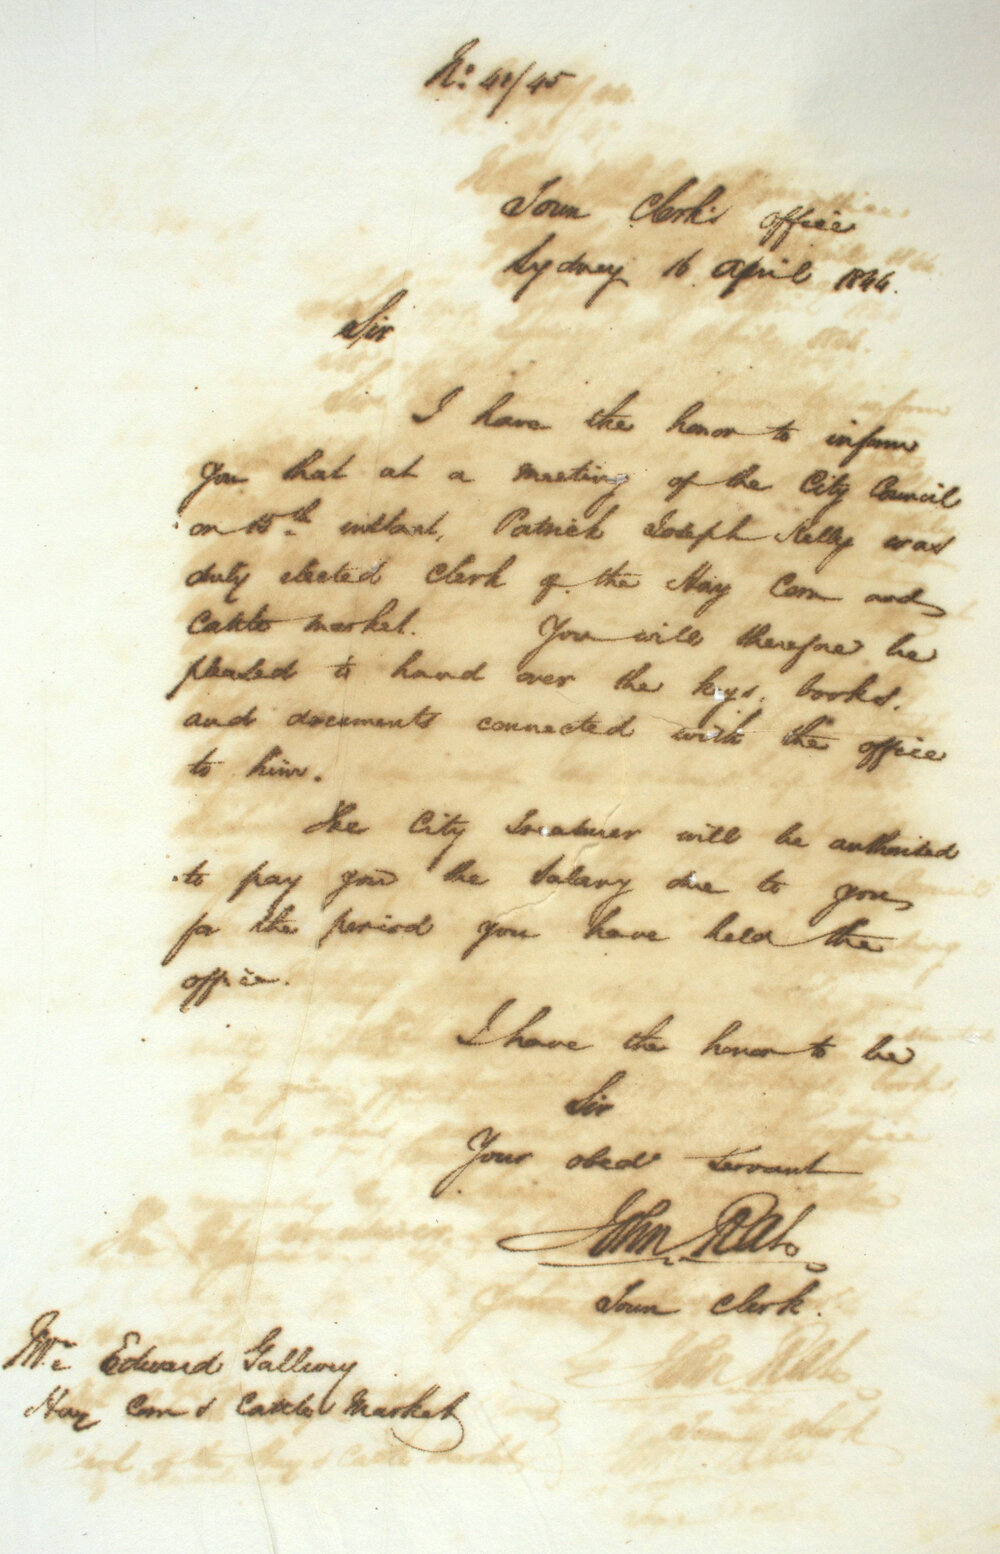 No: 42/45
Town Clerk's office
Sydney 16 April 1844.
Sir
I have the honor to inform
you that at a meeting of the City Council
on 15th instant, Patrick Joseph Kelly was
duly elected Clerk of the Hay Corn and
Cattle market. You will therefore be
pleased to hand over the keys, books,
and documents connected with the office
to him.
The City Treasurer will be authorised
to pay you the Salary due to you
for the period you have held the
office.
I have the honor to be
Sir
Your obed Servant
John
Town Clerk.
Mr Edward Gallwey
Hay Corn & Cattle Market